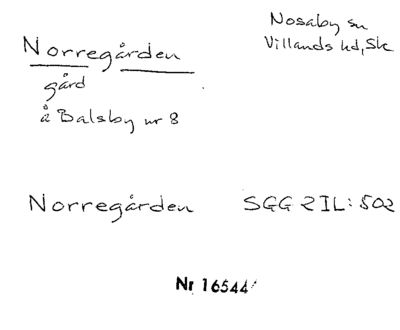 Norregården
gård
å Balsby nr 8
Nosaby sn
Villands hd, Sk
Norregården SGG ZIL: 502
Nr 16544